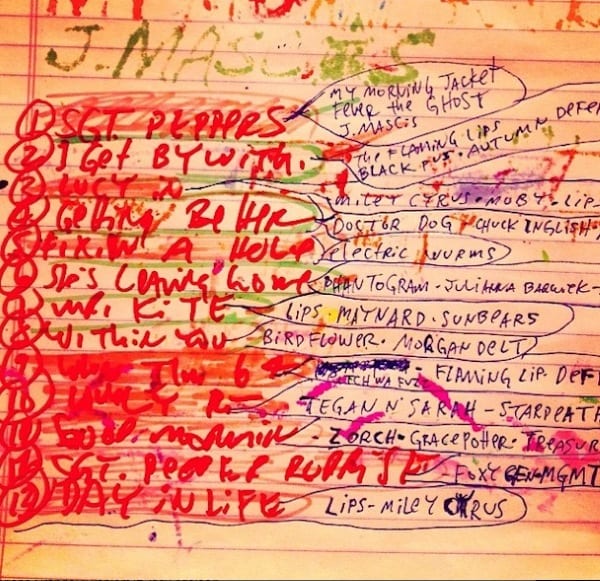 MY
J. MASCIS
① SGT. PEPPERS MY MORNING JACKET
FEVER the GHOST
J. MASCIS
② I Get BY WITH. The FLAMING LIPS
BLACK PUS • AUTUMN DEFE
③ LUCY IN MILEY CYRUS • MOBY • LIP
④ GETTING BETTER DOCTOR DOG • CHUCK INGLISH
⑤ FIXIN A HOLE electric WURMS
⑥ She's Leaving home PHANTOGRAM - JULIANNA BARWICK -
⑦ MR. KITE LIPS • MAYNARD • SUNBEARS
⑧ WITHIN YOU BIRDFLOWER • MORGAN DELT
⑨ 64 - FLAMING LIP. DEF
⑩ LOVELY RI TEGAN N' SARAH - STARDEATH
⑪ GOOD MORNIN - ZORCH • GRACE POTTER • TREASUR
⑫ SGT. PEPPER FOXYGEN-MGMT
⑬ DAY IN LIFE LIPS - MILEY CYRUS